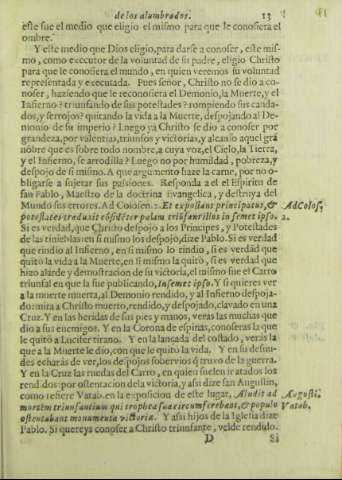 de los alumbrados. 13
este fue el medio que eligio el mismo para que le conosiera el
ombre.
Y este medio que Dios eligio, para darse a conoser, este mis-
mo, como executor de la voluntad de su padre, eligio Christo
para que le conosiera el mundo, en quien veremos su voluntad
representada y executada. Pues señor, Christo no se dio a co-
noser, haziendo que le reconosiera el Demonio, la Muerte, y el
Infierno? triunfando de sus potestades? rompiendo sus canda-
dos, y serrojos? quitando la vida a la Muerte, despojando al De-
monio de su imperio? Luego ya Christo se dio a conoser por
grandeza, por valentias, triunfos y victorias, y alcanso aquel grã
nõbre que es sobre todo nombre, a cuya voz, el Cielo, la Tierra,
y el Infierno, se arrodilla? Luego no por humildad, pobreza, y
despojo de si mismo. A que argumento haze la carne, por no o-
bligarse a sujetar sus passiones. Responda a el el Espiritu de
san Pablo, Maestro de la doctrina Evangelica, y destruya del
Mundo sus errores. Ad Colosen. 2. Et expolians principatus, & Ad Colos,
potestates traduxit cõfidẽter palam triũfans illos in semet ipso. 2.
Si es verdad, que Christo despojo a los Principes, y Potestades
de las tinieblas en si mismo los despojo, dize Pablo. Si es verdad
que rindio al Infierno, en si mismo lo rindio, si es verdad que
quito la vida a la Muerte, en si mismo la quitò, si es verdad que
hizo alarde y demostracion de su victoria, el mismo fue el Carro
triunfal en que la fue publicando, In semet ipso. Y si quieres ver
a la muerte muerta, al Demonio rendido, y al Infierno despoja-
do: mira a Christo muerto, rendido, y despojado, clavado en una
Cruz. Y en las heridas de sus pies y manos, veras las muchas que
dio a sus enemigos. Y en la Corona de espinas, conoseras la que
le quitò a Lucifer tirano. Y en la lançada del costado, veràs la
que a la Muerte le dio, con que le quito la vida. Y en su desnu-
des echaràs de ver, los despojos sobervios q̃ truxo de la guerra.
Y en la Cruz las ruedas del Carro, en quien suelen ir atados los
rendidos: por ostentacion de la victoria, y assi dize san Augustin,
como refiere Vatab. en la exposicion de este lugar, Aludit ad Augusti,
morem triunfantium qui trophea sua circumferebant, & populo Vatab,
ostentabant monumenta victoriæ. Y assi hijos de la Iglesia dize
Pablo. Si quereys conoser a Christo triunfante, velde rendido.
D Si